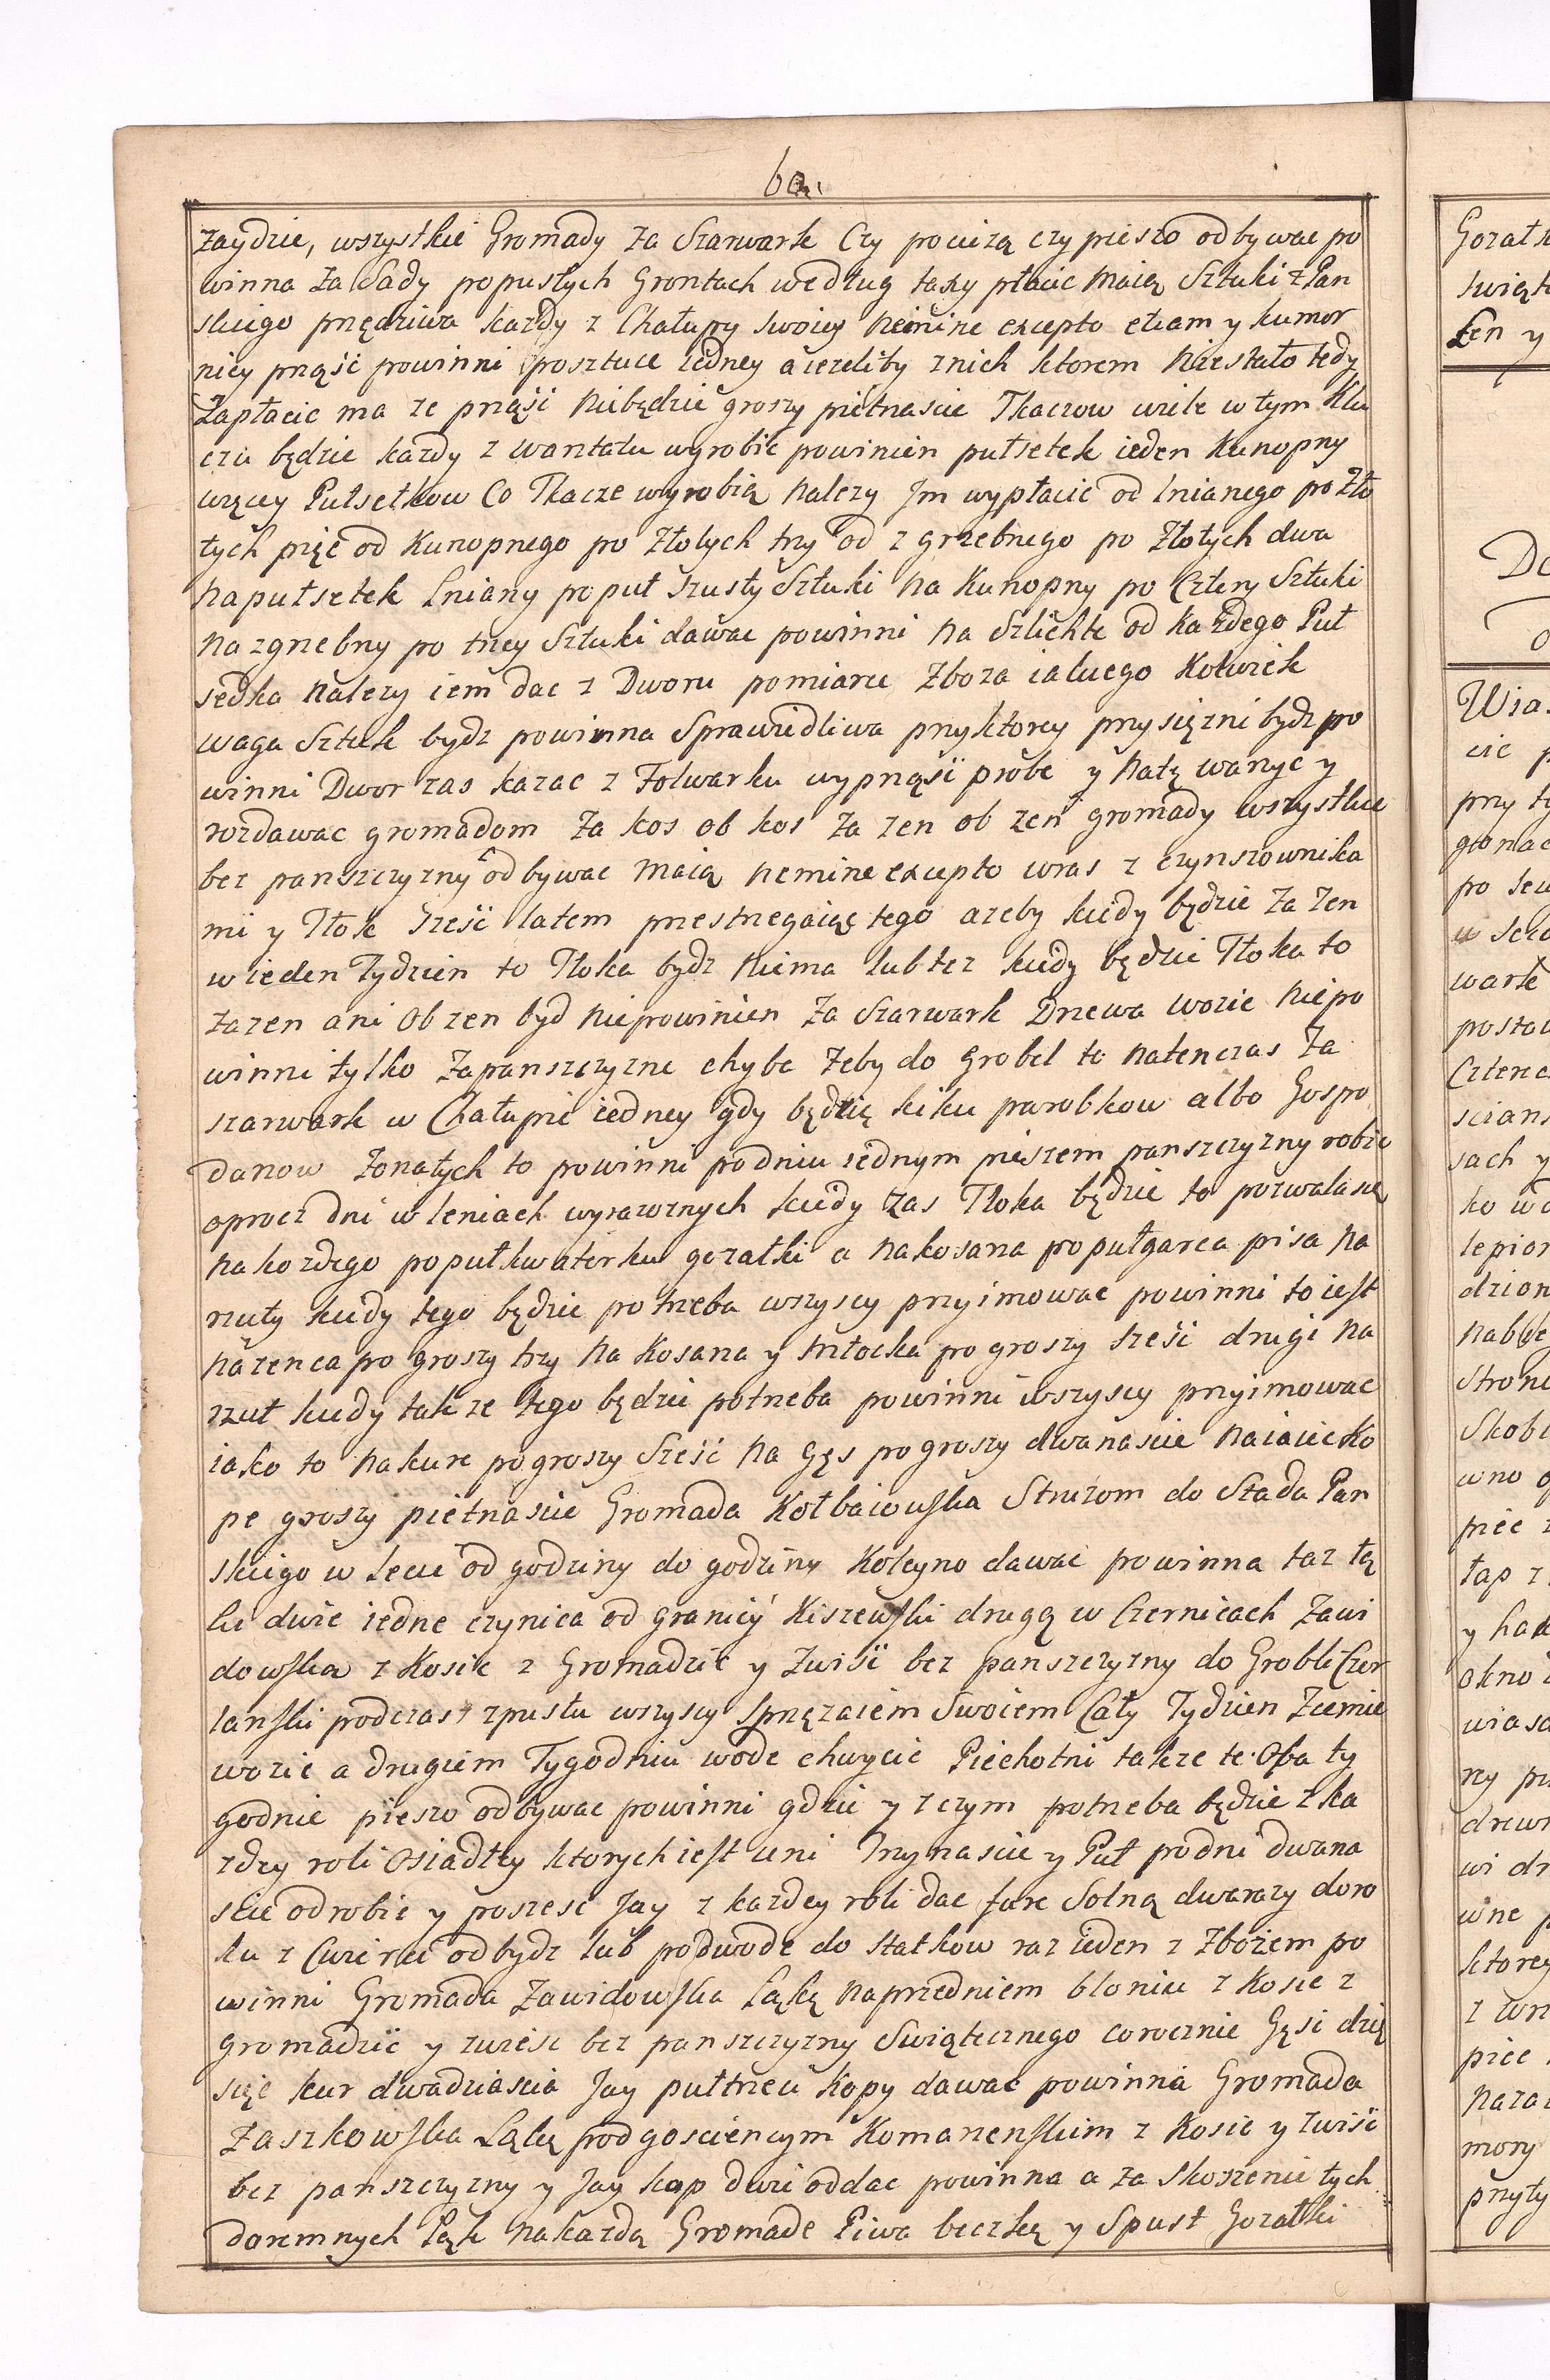 60.
zaydzie, wszystkie Gromady za Szarwark Czy pociezą czy pieszo odbywac po
winna za Sady popustych Grontach według taxy płacic maią Sztuki z Pan
skiego przędziwa kazdy z Chałupy swoiey nemine excepto etiam y kumor
nicy prząść powinni posztuce iedney a iezeliby znich ktorem niestało tedy
Zapłacic ma ze prząść niebędzie groszy piętnascie Tkaczow wiele w tym Klu
czu będzie kazdy z wartatu wyrobić powinien pułsetek ieden Kunopny
więcey Pułsetkow Co Tkacze wyrobią nalezy Jm wypłacić od lnianego po Zło
tych pięć od Kunopnego po Złotych trzy od zgrzebnego po Złotych dwa
na pułsetek Lniany po puł szusty Sztuki na Kunopny po Cztery Sztuki
na zgrzebny po trzey Sztuki dawac powinni na Szlichte od każdego Puł
sedka nalezy iem dac z Dworu pomiarce Zboza iakiego Kolwiek
waga Sztuk bydz powinna Sprawiedliwa przyktorey przysięzni bydz po
winni Dwor zas kazac z Folwarku wyprząść probe y natę wanye y
rozdawac gromadom za kos ob kos za zen ob zen gromady wszystkie
bez panszczyzny odbywac maią nemine excepto wras z czynszownika
mi y Tłok sześć latem przestrzegaiąc tego azeby kiedy będzie za zen
w ieden Tydzien to Tłoka bydz niema lub tez kiedy będzie Tłoka to
zazen ani Obzen byd niepowinien za Szarwark Drzewa wozic niepo
winni tylko Zapanszczyzne chyba żeby do Grobel to natenczas Za
szarwark w Chałupie iedney gdy będzie kilku parobkow albo Gospo
darzow żonatych to powinni podniu iednym pieszem panszczyzny robic
oprocz dni w leniach wyrazonych kiedy zas Tłoka będzie to pozwala się
na kozdego po pułkwaterku gorzałki a na kosarza po pułgarca piwa na
rzuty kiedy tego będzie potrzeba wszyscy przyimowac powinni to iest
na zenca po groszy trzy na Kosarza y młocka po groszy sześć drugi na
rzut kiedy takze tego będzie potrzeba powinni wszyscy przyimowac
iako to na kure po groszy sześć na Gęs po groszy dwanascie naiaiec Ko
pe groszy piętnascie Gromada Kołbaiowska Struzom do Stada Pan
skiego w lecie od godziny do godziny Koleyno dawac powinna taz Łą
ki dwie iedne czynica od granicy Kiszewski drugą w Czernicach Zawi
dowska z Kosic z Gromadzić y Zwiśc bez panszczyzny do Grobli Czer
lanski podczas zpustu wszyscy Sprzęzaiem Swoiem Cały Tydzien Ziemie
wozic a drugiem Tygodniu wode chwycic Piechotni takze te Oba ty
godnie pieszo odbywac powinni gdzie y z czym potrzeba będzie z ka
zdey roli Osiadłey ktorych iest uni Trzynascie y Puł podni dwana
scie odrobic y poszesc Jay z kazdey roli dac fure Solną dwarazy doro
ku z Cwierci odbydz lub podwode do statkow raz ieden z Zbożem po
winni Gromada Zawidowska Łąkę naprzedniem bloniu z Kosic z
gromadzić y zwieśc bez panszczyzny Swiątecznego corocznie Gęsi dzie
sięć kur dwadziascia Jay pułtrzeci Kopy dawac powinna Gromada
Zaszkowska Łąkę pod goscincym Komarzenskim z Kosic y zwiść
bez panszczyzny y Jay kop dwie oddac powinna a za skoszenie tych
daremnych Łąk nakazdą Gromade Piwa beczkę y Spust Gorzałki